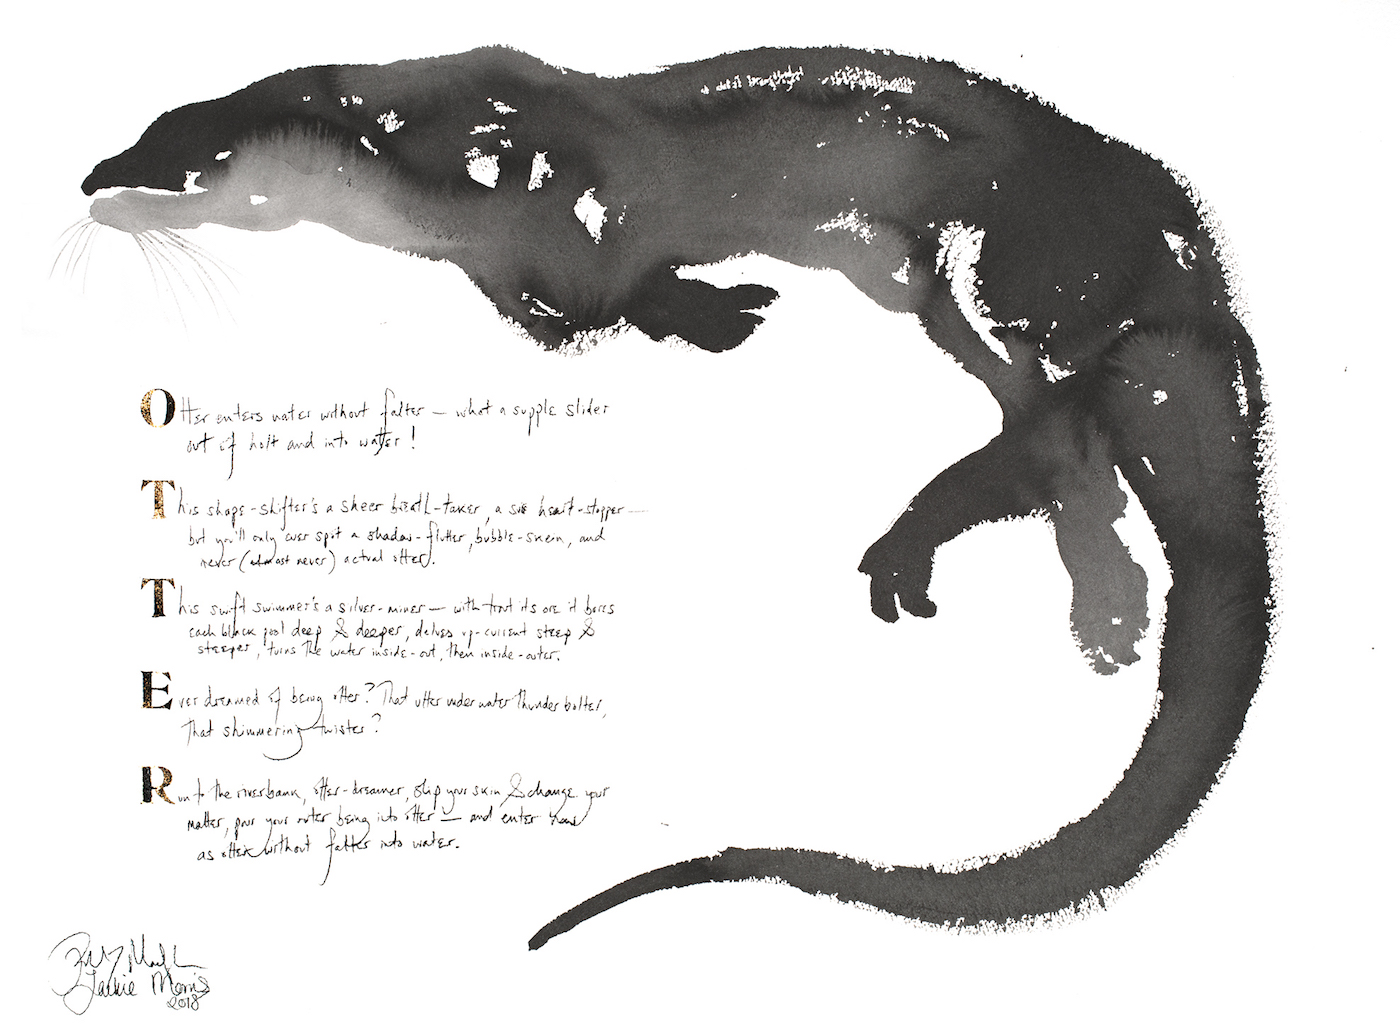 Otter enters water without falter — what a supple slider
out of holt and into water!
This shape-shifter's a sheer breath-taker, a sure heart-stopper —
but you'll only ever spot a shadow-flutter, bubble-skein, and
never (almost never) actual otter.
This swift swimmer's a silver-miner — with trout its ore it bores
each black pool deep & deeper, delves up-current steep &
steeper, turns the water inside-out, then inside-outer.
Ever dreamed of being otter? That utter underwater thunder bolter,
That shimmering twister?
Run to the riverbank, otter-dreamer, slip your skin & change your
matter, pour your outer being into otter — and enter now
as otter without falter into water.
Jackie Morris
2018